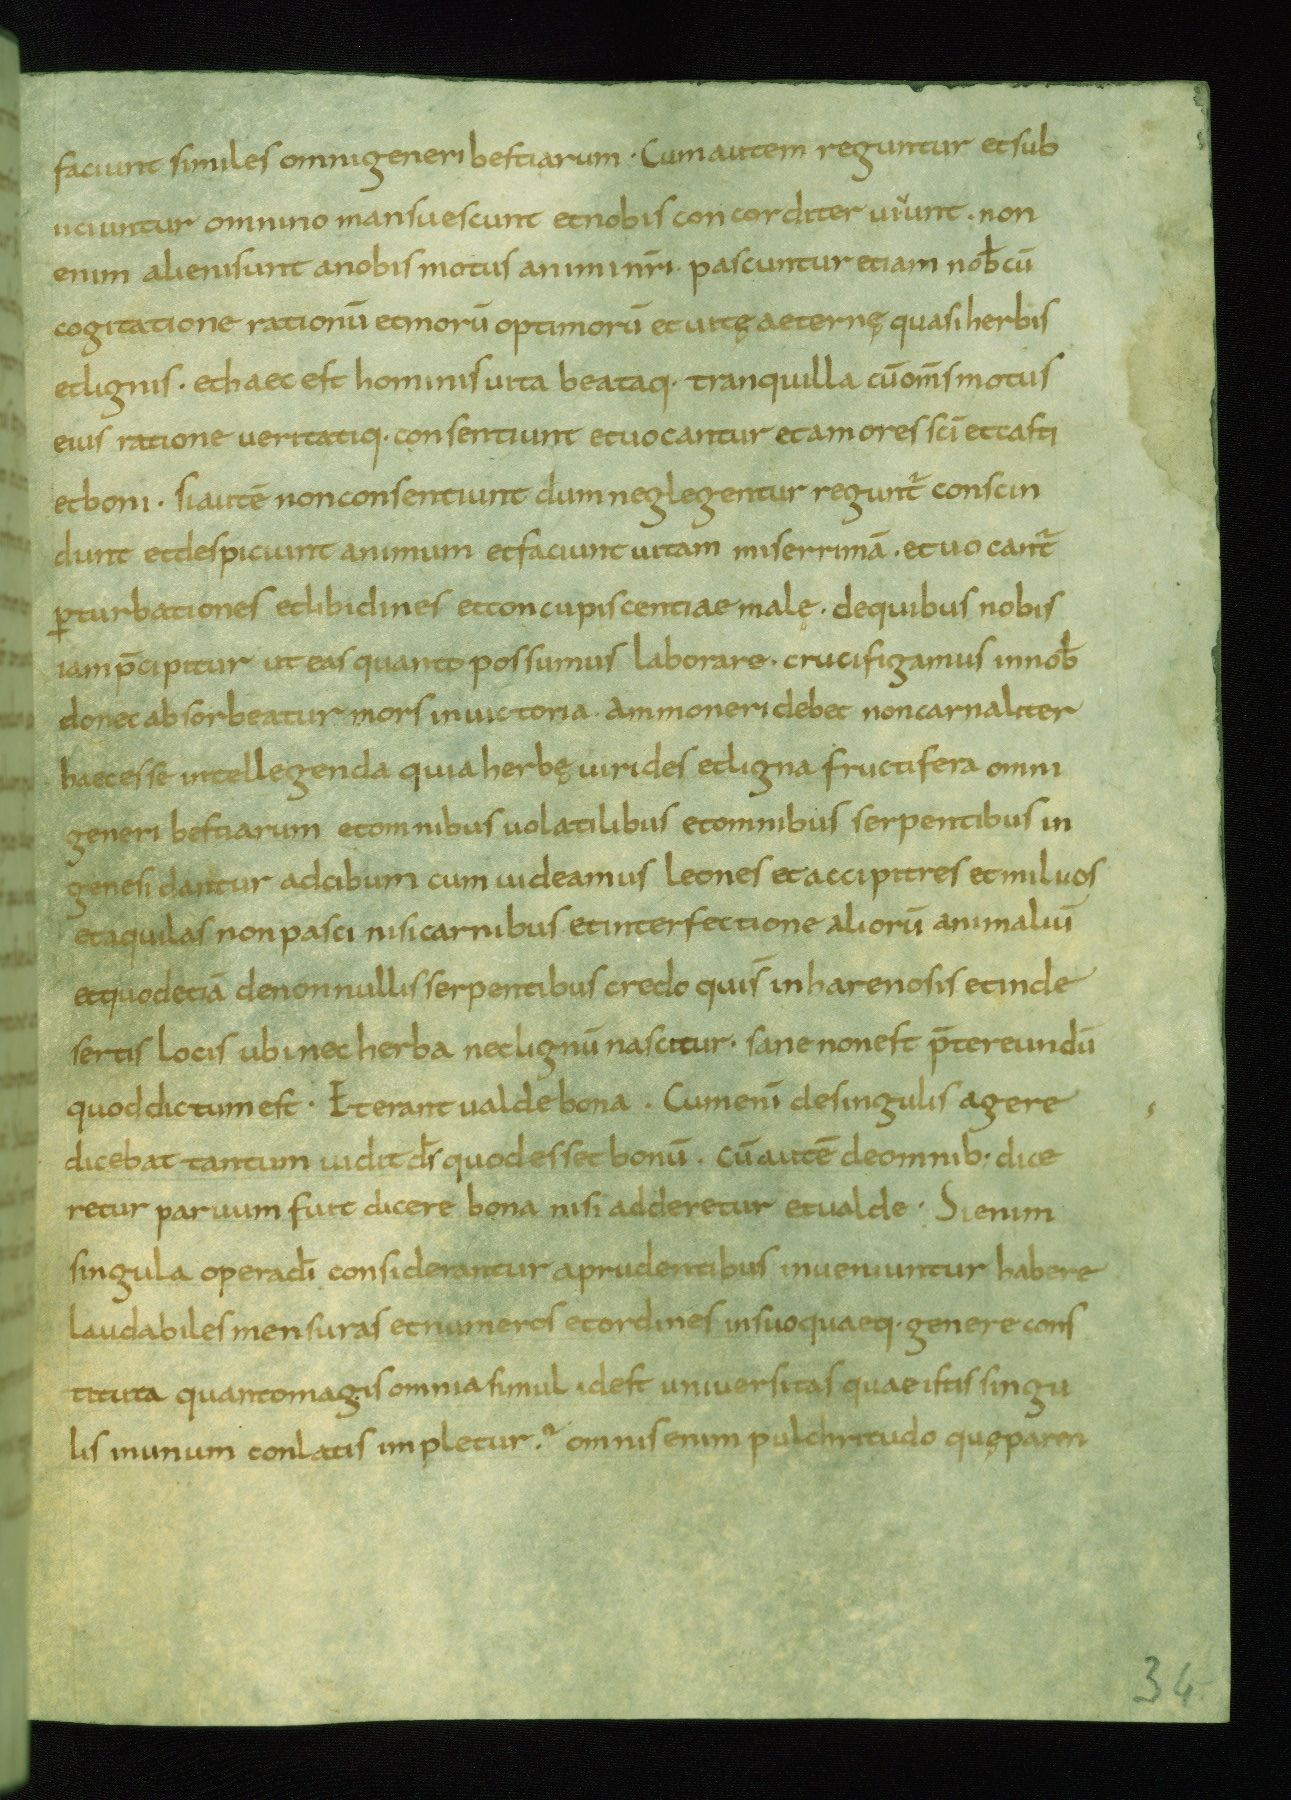 faciunt similes omni generi bestiarum · Cum autem reguntur et sub
iiciuntur omnino mansuescunt et nobis concorditer uiuunt · non
enim alieni sunt a nobis motus animi nr̄i · pascuntur etiam nob̄ cū
cogitatione rationū et morū optimorū et uitę aeternę quasi herbis
et lignis · et haec est hominis uita beataq· tranquilla cū om̄s motus
eius ratione ueritatiq· consentiunt et uocantur et amores sc̄i et casti
et boni · si autē non consentiunt dum neglegentur regunt᷑ conscin
dunt et despiciunt animum et faciunt uitam miserrimā · et uocant᷑
ꝑturbationes et libidines et concupiscentiae malę · de quibus nobis
iam p̄cipitur ut eas quanto possumus laborare · crucifigamus in nob̄
donec absorbeatur mors in uictoria · Ammoneri debet non carnaliter
haec esse intellegenda quia herbę uirides et ligna fructifera omni
generi bestiarum et omnibus uolatilibus et omnibus serpentibus in
genesi dantur ad cibum cum uideamus leones et accipitres et miluos
et aquilas non pasci nisi carnibus et interfectione aliorū animaliū
et quod etiā de nonnullis serpentibus credo qui s̄ in harenosis et in de
sertis locis ubi nec herba nec lignū nascitur · sane non est p̄tereundū
quod dictum est · Et erant ualde bona · Cum eni̅ de singulis agere
dicebat tantum uidit d̄s quod esset bonū · cū autē de omnib· dice
retur paruum fuit dicere bona nisi adderetur et ualde · Si enim
singula opera dī considerantur a prudentibus inueniuntur habere
laudabiles mensuras et numeros et ordines in suo quaeq· genere cons
tituta quanto magis omnia simul id est uniuersitas quae istis singu
lis in unum conlatis impletur ·? omnis enim pulchritudo quę paren
34